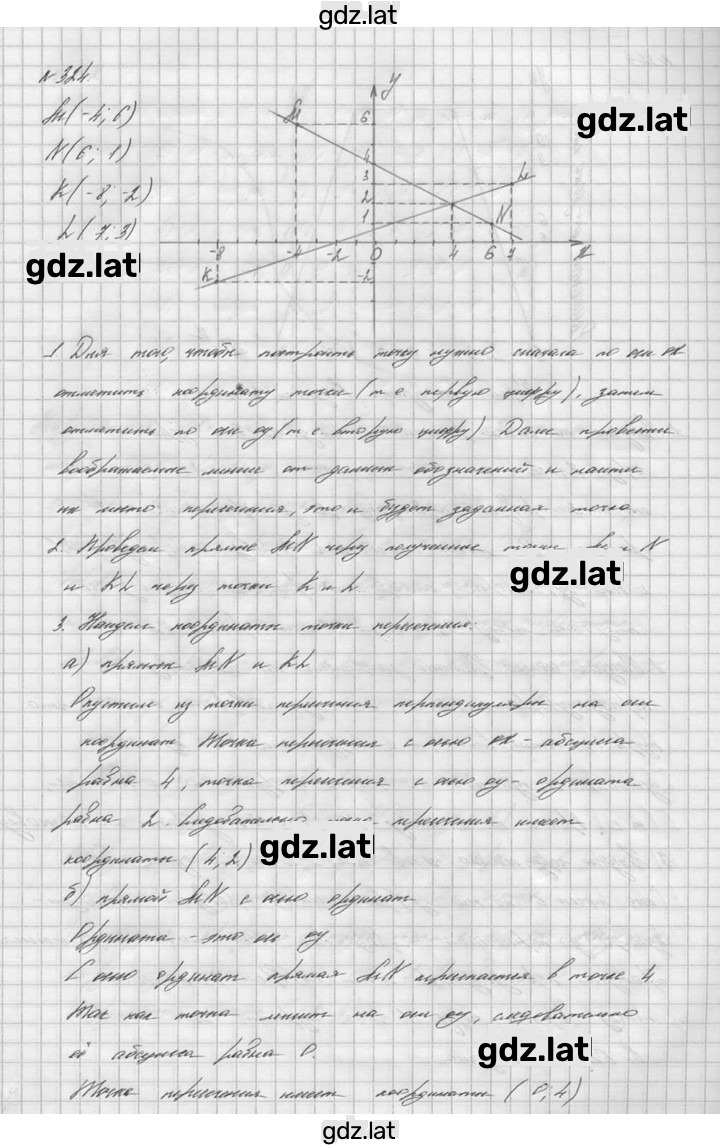 gdz.lat
№ 324.
M(-4; 6)
gdz.lat
N(6; 1)
K(-8; -2)
L(7; 3)
gdz.lat
y
M
6
4
3
L
2
1
N
-8
-4
-2
0
4
6
7
x
K
-2
1 Для того, чтобы построить точку нужно сначала по оси ox
отметить координату точки (т.е. первую цифру), затем
отметить по оси oy (т.е. вторую цифру). Дале провести
воображаемые линии от данных обозначений и найти
их место пересечения, это и будет заданная точка.
2. Проведем прямые MN через полученные точки и N
и KL через точки K и L
gdz.lat
3. Найдем координаты точки пересечения:
а) прямых MN и KL
Опустим из точки пересечения перпендикуляры на оси
координат Точка пересечения с осью ox - абсцисса
равна 4, точка пересечения с осью oy - ордината
равна 2. пересечения имеет
координаты (4; 2)
gdz.lat
б) прямой MN с осью ординат
Ордината - это ось oy.
С осью ординат прямая MN пересекается в точке 4
Так как точка лежит на оси oy, следовательно
её абсцисса равна 0.
gdz.lat
Точка пересечения имеет координаты (0; 4)
gdz.lat